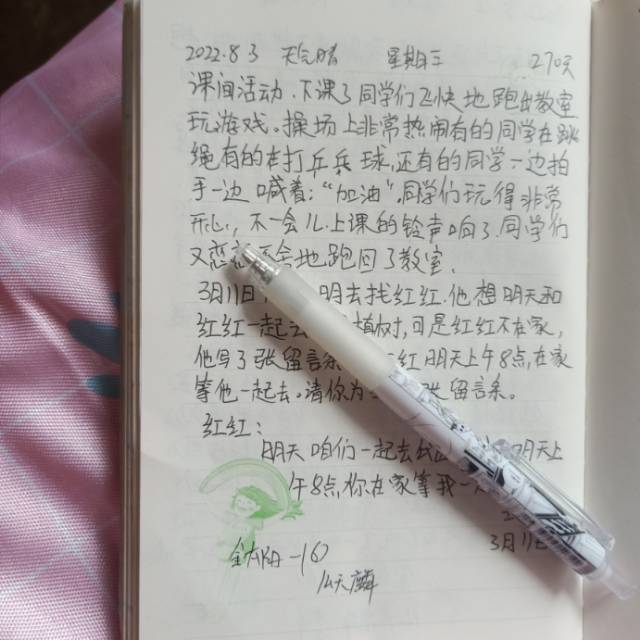 2022.8.3 天气晴 星期三 270天
课间活动.下课了同学们飞快地跑出教室
玩游戏。操场上非常热闹有的同学在跳
绳有的在打乒乓球.还有的同学一边拍
手一边喊着:“加油”.同学们玩得非常
开心,不一会儿上课的铃声响了.同学们
又恋恋不舍地跑回了教室.
3月11日 明去找红红.他想明天和
红红一起去 植树,可是红红不在家,
他写了张留言条 红明天上午8点,在家
等他一起去。请你 张留言条。
红红:
明天咱们一起去 明天上
午8点你在家等我一
3月11日